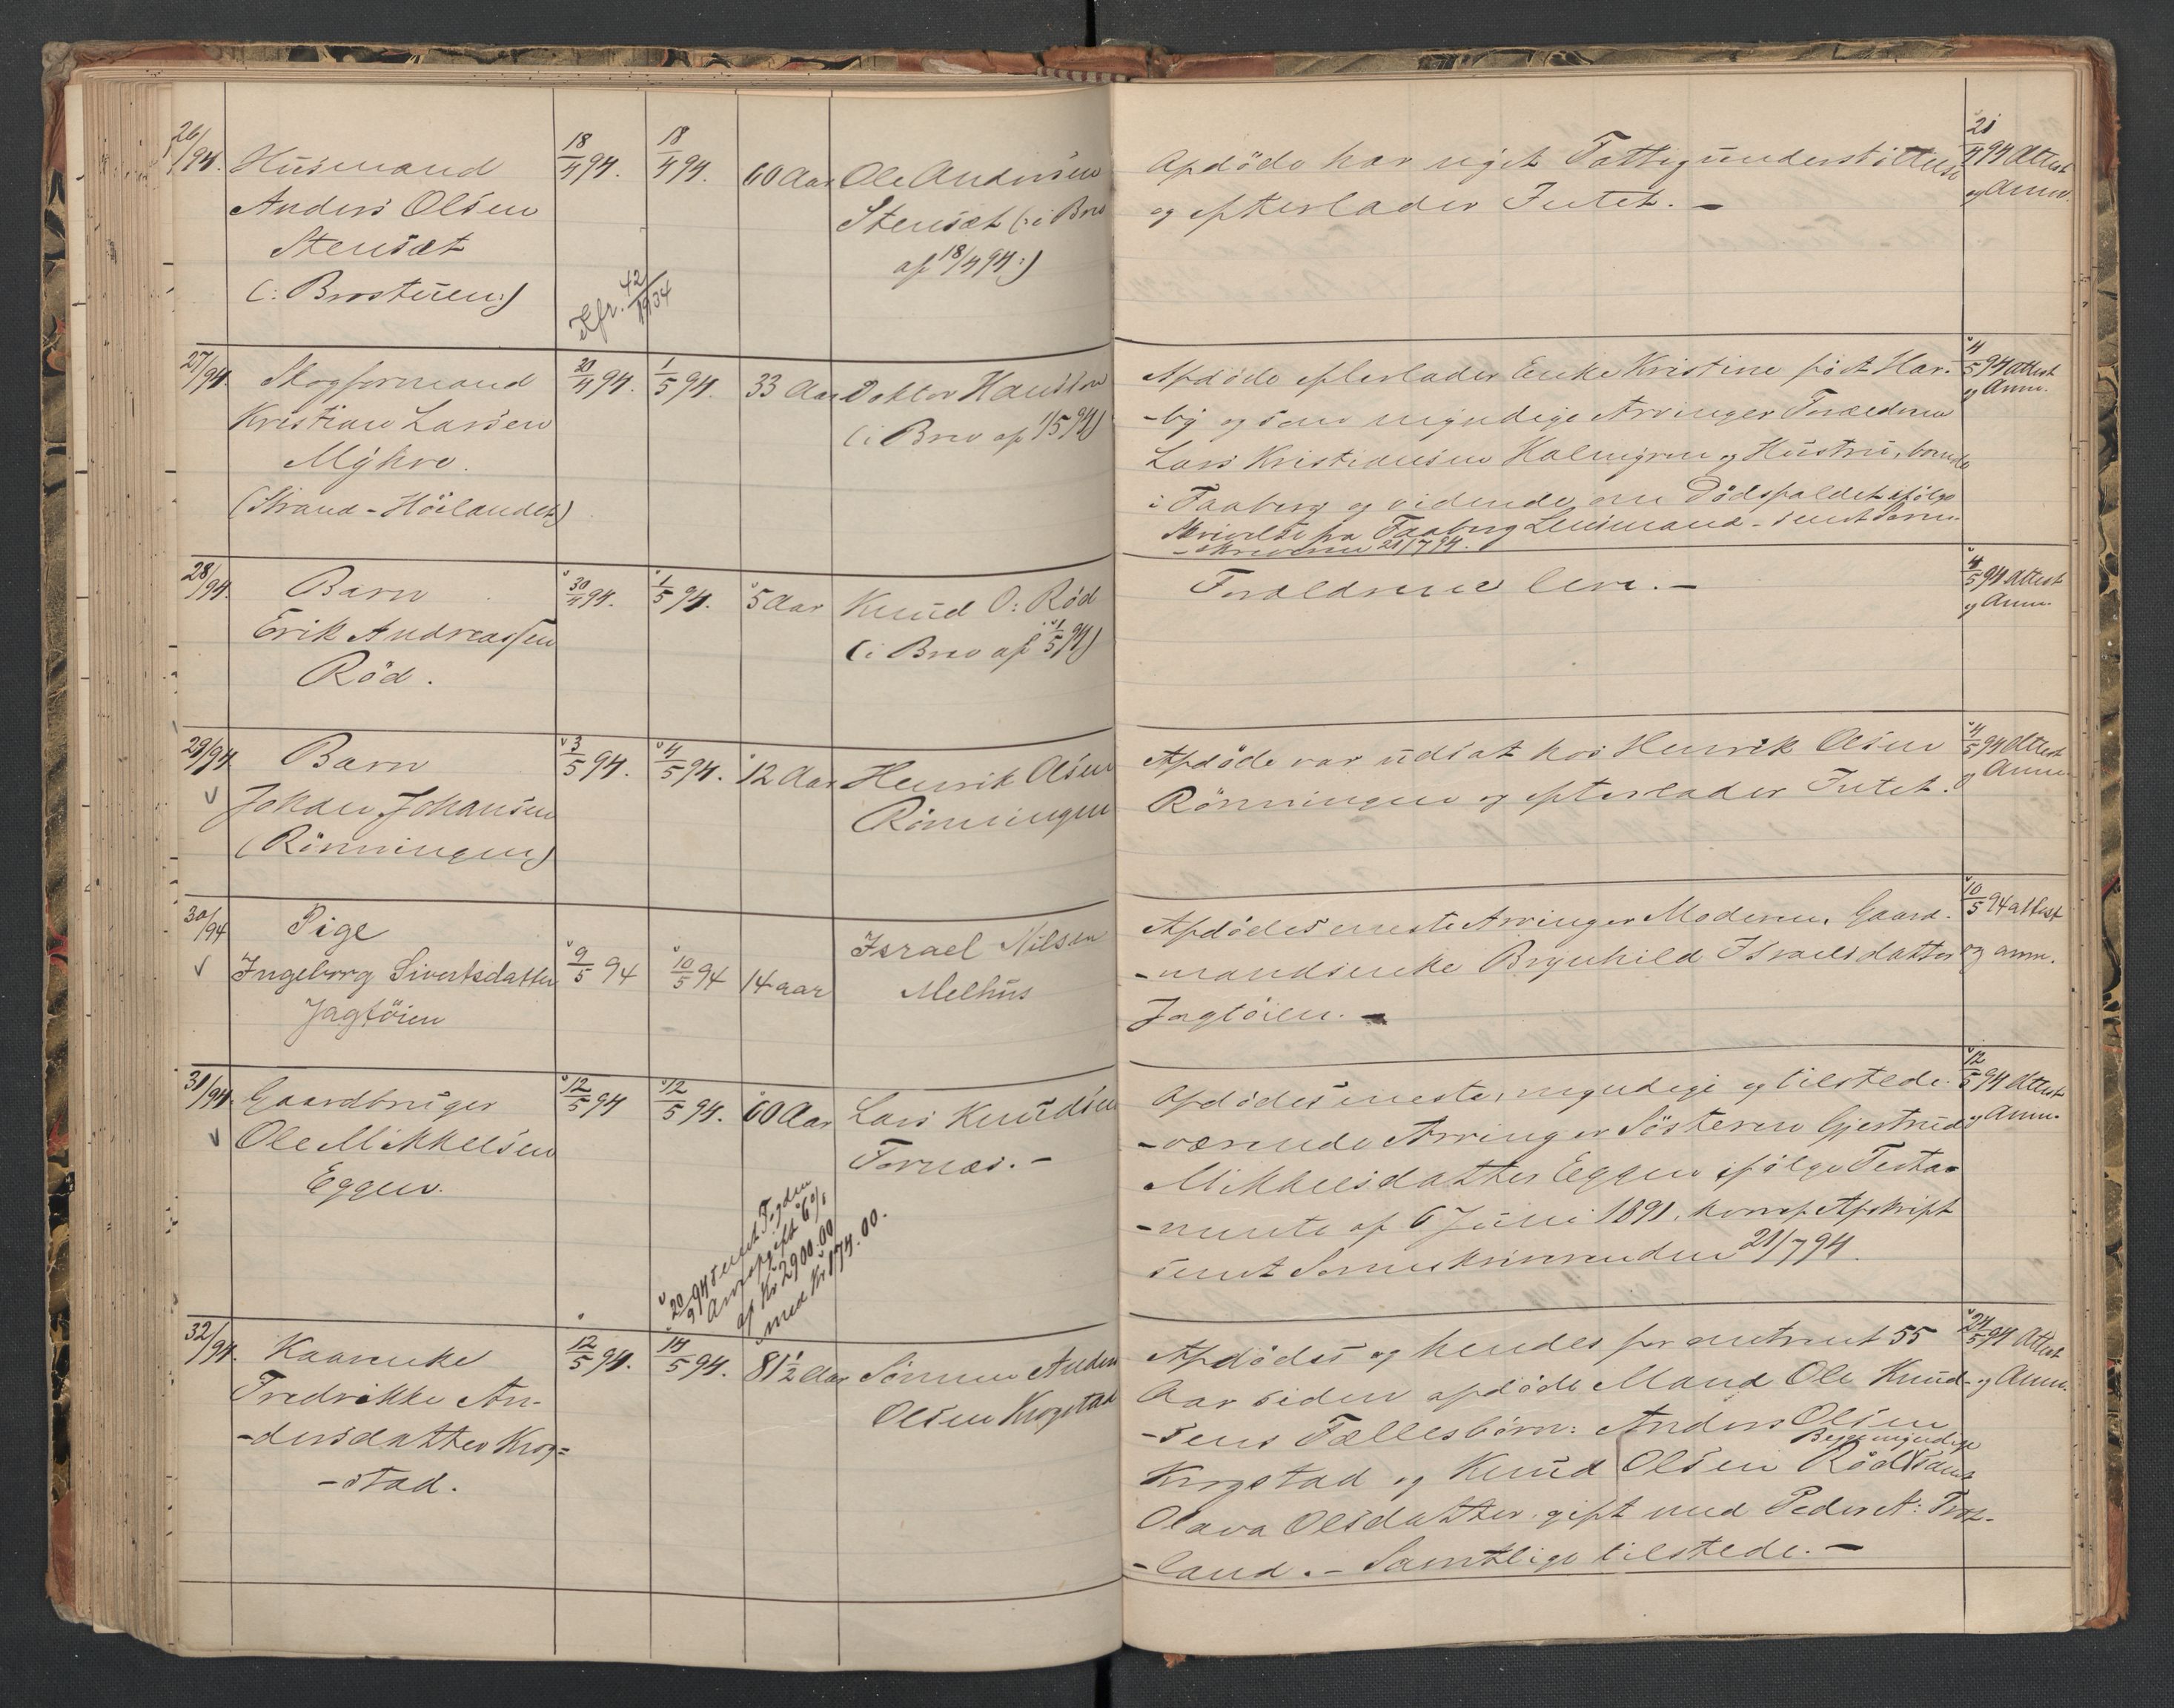 26/94. Husmand 18/4 94. 18/4 94. 60 Aar Ole Andersen Afdøde har nydt Fattigunderstøttelse 21/4 94 Attest
Anders Olsen Stensæt (: i Brev og efterlader Intet. – og Anm.
Stensæt af 18/4 94:)
(: Brostuen:) Kfr. 42/1934
27/94. Skogformand 30/4 94. 1/5 94. 33 Aar Doktor Hansson Afdøde efterlader Enke Kristine født Har- 4/5 94 Attest
Kristian Larsen (i Brev af 1/5 94) -by og som myndige Arvinger Forældrene og Anm.
Myhre. Lars Kristiansen Holmgren og Hustru, boende
(Strand-Höilandet) i Faaberg og vidende om Dödsfaldet ifölge
Skrivelse fra Faaberg Lensmand - sendt Soren-
-skriveren 21/7 94.
28/94. Barn 30/4 94. 1/5 94. 5 Aar Knud O: Röd Forældrene leve. – 4/5 94 Attest
Erik Andreassen (i Brev af 1/5 94) og Anm.
Röd.
29/94. Barn 3/5 94. 4/5 94. 12 Aar Henrik Olsen Afdöde var udsat hos Henrik Olsen 4/5 94 Attest
Johan Johansen Rönningen Rönningen og efterlader Intet. og Anm.
(Rönningen)
30/94 Pige Israel Nilsen Afdödes eneste Arving er Moderen, Gaard- 10/5 94 attest
Ingeborg Sivertsdatter 9/5 94 10/5 94 14 aar Melhus -mandsenke Brynhild Israelsdatter og anm.
Jagtöien Jagtöien. –
31/94. Gaardbruger 12/5 94 12/5 94. 60 Aar Lars Knudsen Afdödes eneste, myndige og tilstede- 12/5 94 Attest
Ole Mikkelsen Fornæs. – -værende Arving er Sösteren Gjertrud og Anm.
Eggen. Mikkelsdatter Eggen ifölge Testa-
-mente af 6 Juni 1891, hvoraf Afskrift
sendt Sorenskriveren den 21/7 94.
20/9 94 sendt Fogden
Arveafgift 6%
af Kr. 2900.00
med Kr. 174.00.
32/94. Kaarenke 12/5 94. 14/5 94. 81 1/2 Aar Sönnen Anders Afdödes og hendes for omtrent 55 24/5 94 Attest
Fredrikke An- Olsen Krogstad Aar siden afdöde Mand Ole Knud- og Anm.
-dersdatter Krog= -sens Fællesbörn: Anders Olsen
-stad. Krogstad og Knud Olsen Röd Begge myndige samt
Olava Olsdatter gift med Peder A:
-land. – Samtlige tilstede. –